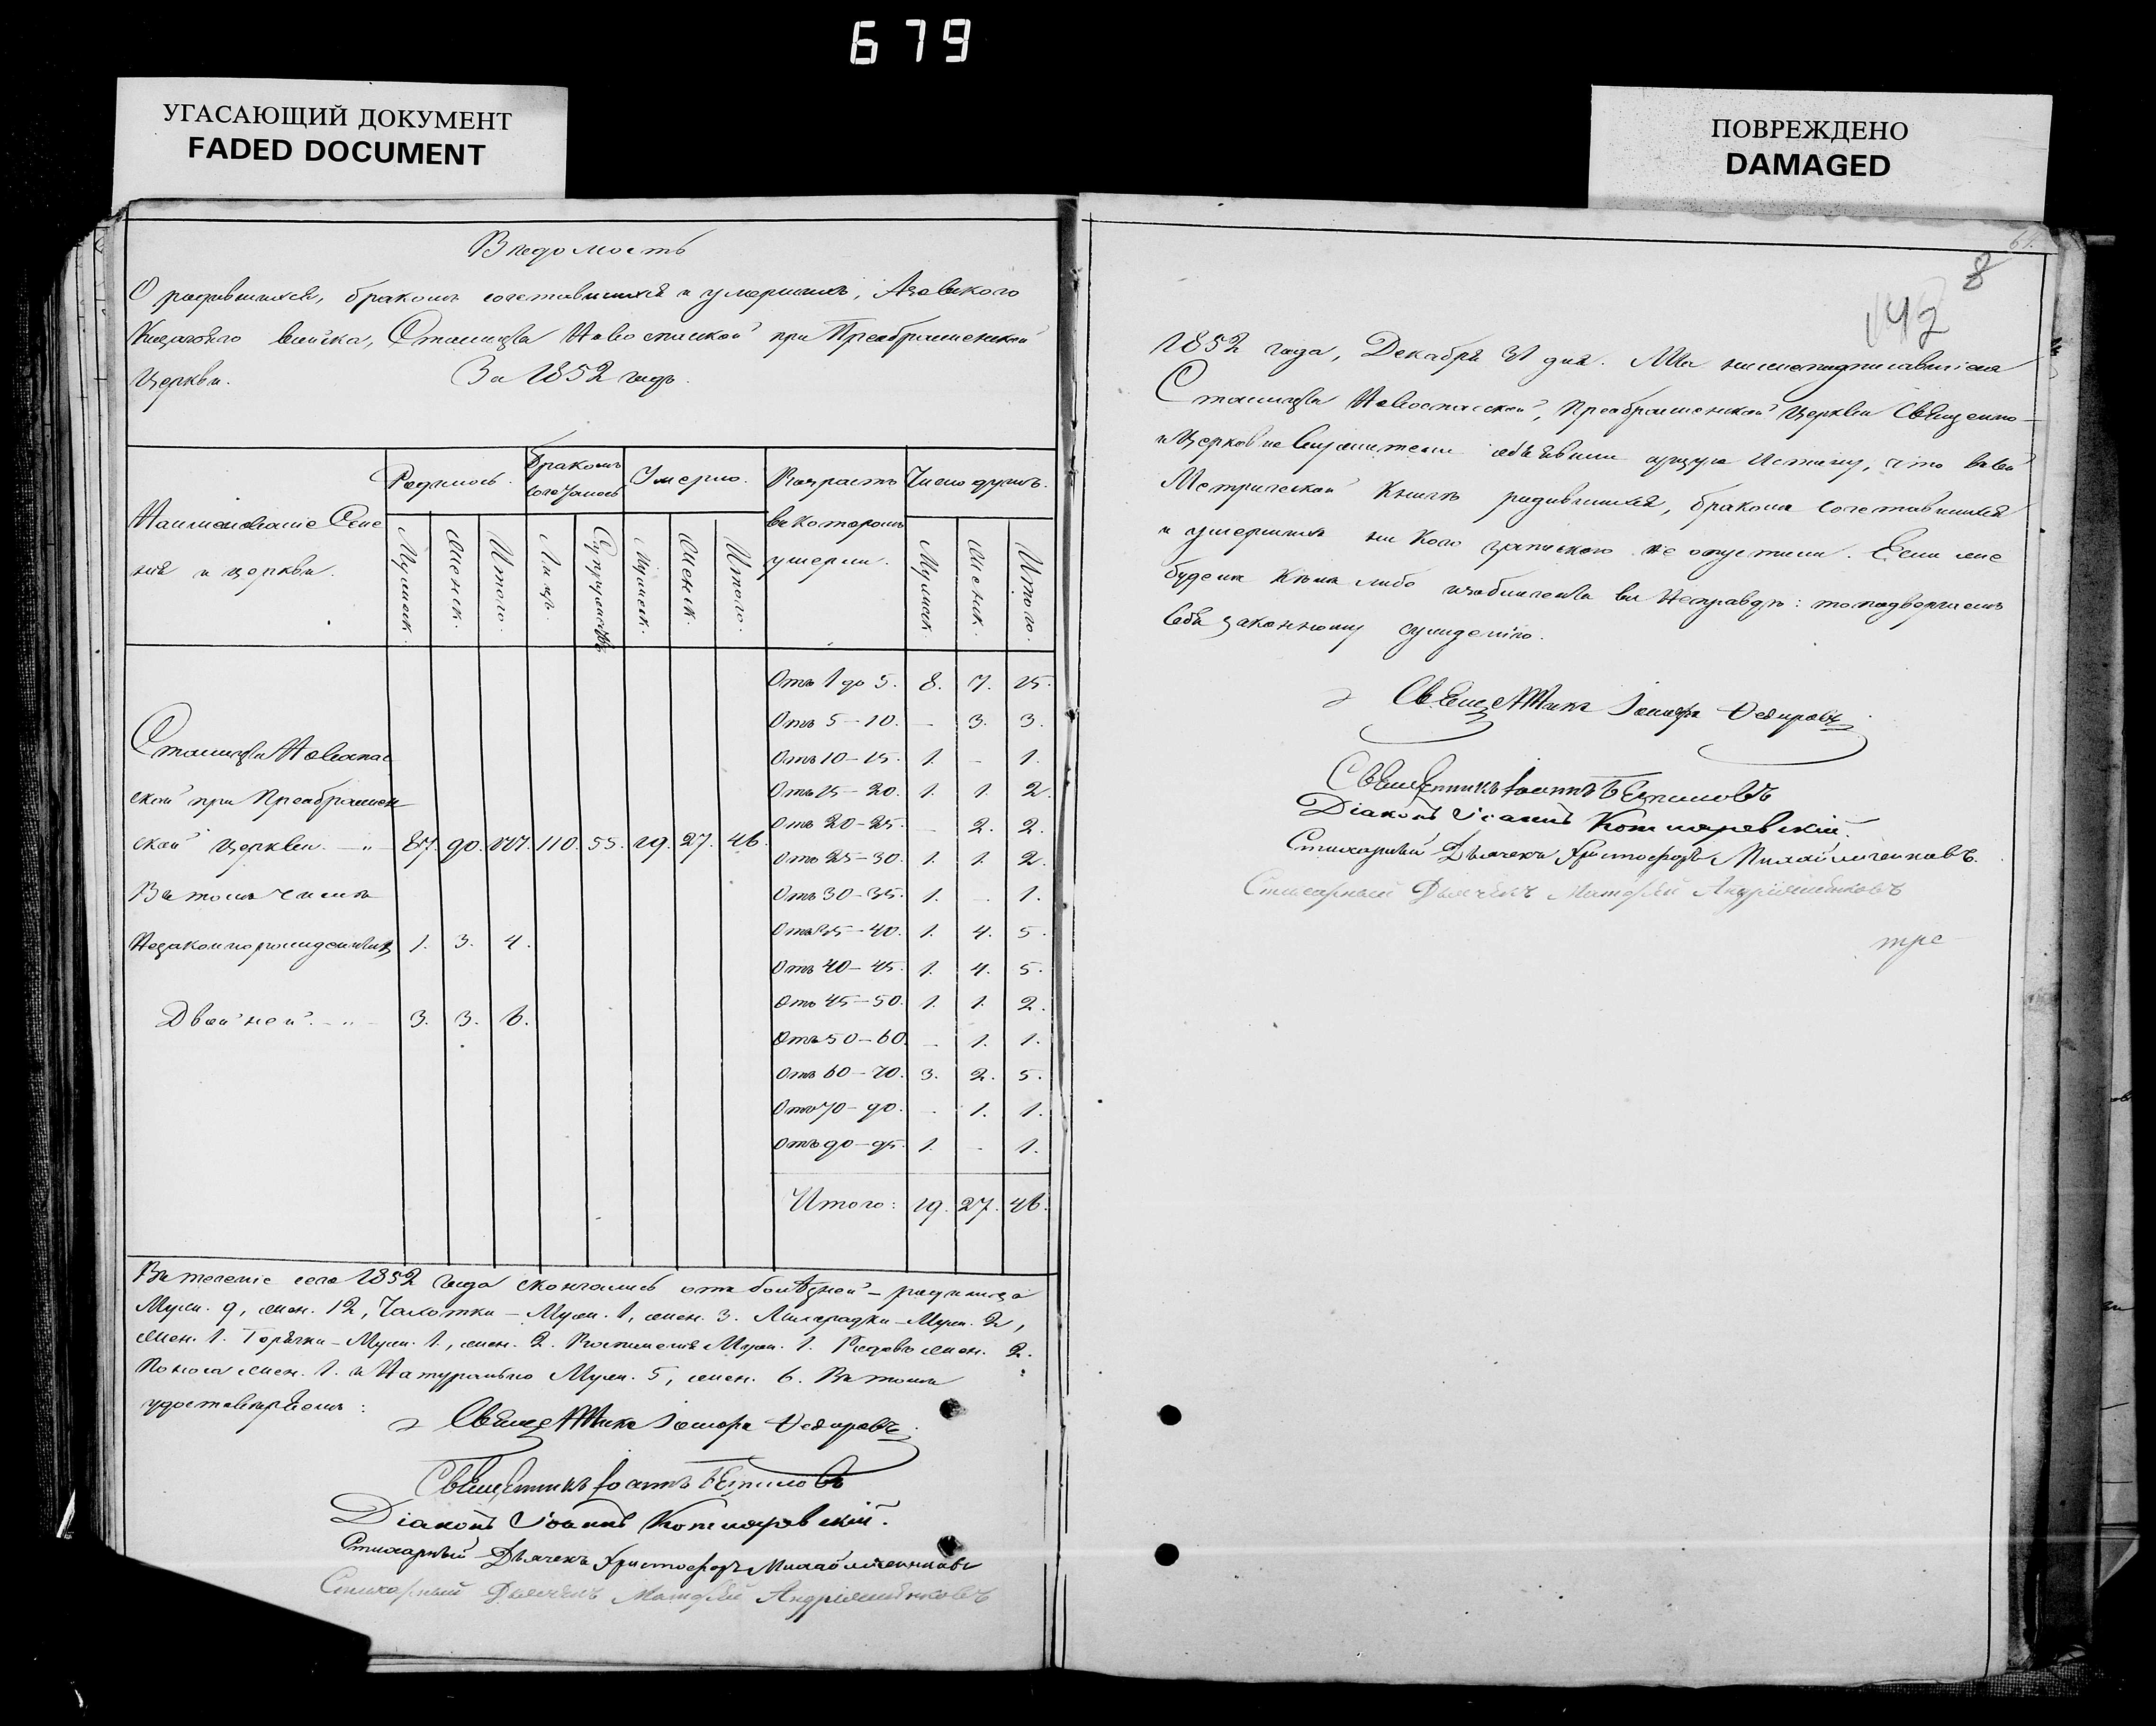 679
УГАСАЮЩИЙ ДОКУМЕНТ
FADED DOCUMENT
ПОВРЕЖДЕНО
DAMAGED
Ведомость
О родившихся, бракомъ сочетавшихся и умершихъ, Азовского
Казачьяго войска, Станицы Новоспаской при Преображенской
Церкви. За 1852 годъ.
Наименование Селе
ния и церкви.
Родилось.
Мужеск. Женск. Итого.
Бракомъ
сочеталось
Лицъ. Супружествъ
Умерло.
Мужеск. Женск. Итого.
Возрастъ
въ которомъ
умерли.
Число душъ.
Мужеск. Женск. Итого.
Отъ 1 до 5. 8. 7. 15.
Отъ 5 – 10. – 3. 3.
Отъ 10 – 15. 1. – 1.
Отъ 15 – 20. 1. 1. 2.
Отъ 20 – 25. – 2. 2.
Отъ 25 – 30. 1. 1. 2.
Отъ 30 – 35. 1. – 1.
Отъ 35 – 40. 1. 4. 5.
Отъ 40 – 45. 1. 4. 5.
Отъ 45 – 50. 1. 1. 2.
Отъ 50 – 60. – 1. 1.
Отъ 60 – 70. 3. 2. 5.
Отъ 70 – 90. – 1. 1.
Отъ 90 – 95. 1. – 1.
Итого: 19. 27. 46.
Станицы Новоспас
ской при Преображен
ской Церкви. – „ – 87. 90. 177. 110. 55. 19. 27. 46.
Въ томъ числѣ
Незаконнорожденныхъ 1. 3. 4.
Двойней. – „ – 3. 3. 6.
Въ теченіе сего 1852 года скончались отъ болѣзней – родимца
Муж. 9, жен. 12, Чахотки – Муж. 1, жен. 3. Лихорадки – Муж. 2,
жен. 1. Горячки – Муж. 1., жен. 2. Муж. 1. Родовъ жен. 2.
Поноса жен. 1. и Натурально Муж. 5, жен. 6. Въ томъ
удостовѣряемъ:
Ѳедоровъ
Священникъ Іоаннъ
Діаконъ Іоаннъ Котляревскій.
Стихарный Дьячекъ Христофоръ
Стихарный Дьячекъ Матѳей
61.
8
142
1852 года, Декабря 31 дня. Мы нижеподписавшіеся
Станицы Новоспасской, Преображенской Церкви Священно–
и Церковнослужители объявили сущую Истину, что въ сей
Метрической Книгѣ родившихся, бракомъ сочетавшихся
и умершихъ ни Кого запискою не опустили. Если же
будемъ Кѣмъ либо изобличены въ Неправдѣ: то подвергаемъ
себя законному сужденію.
Ѳедоровъ
Священникъ Іоаннъ
Діаконъ Іоаннъ Котляревскій.
Стихарный Дьячекъ Христофоръ
Стихарный Дьячекъ Матѳей